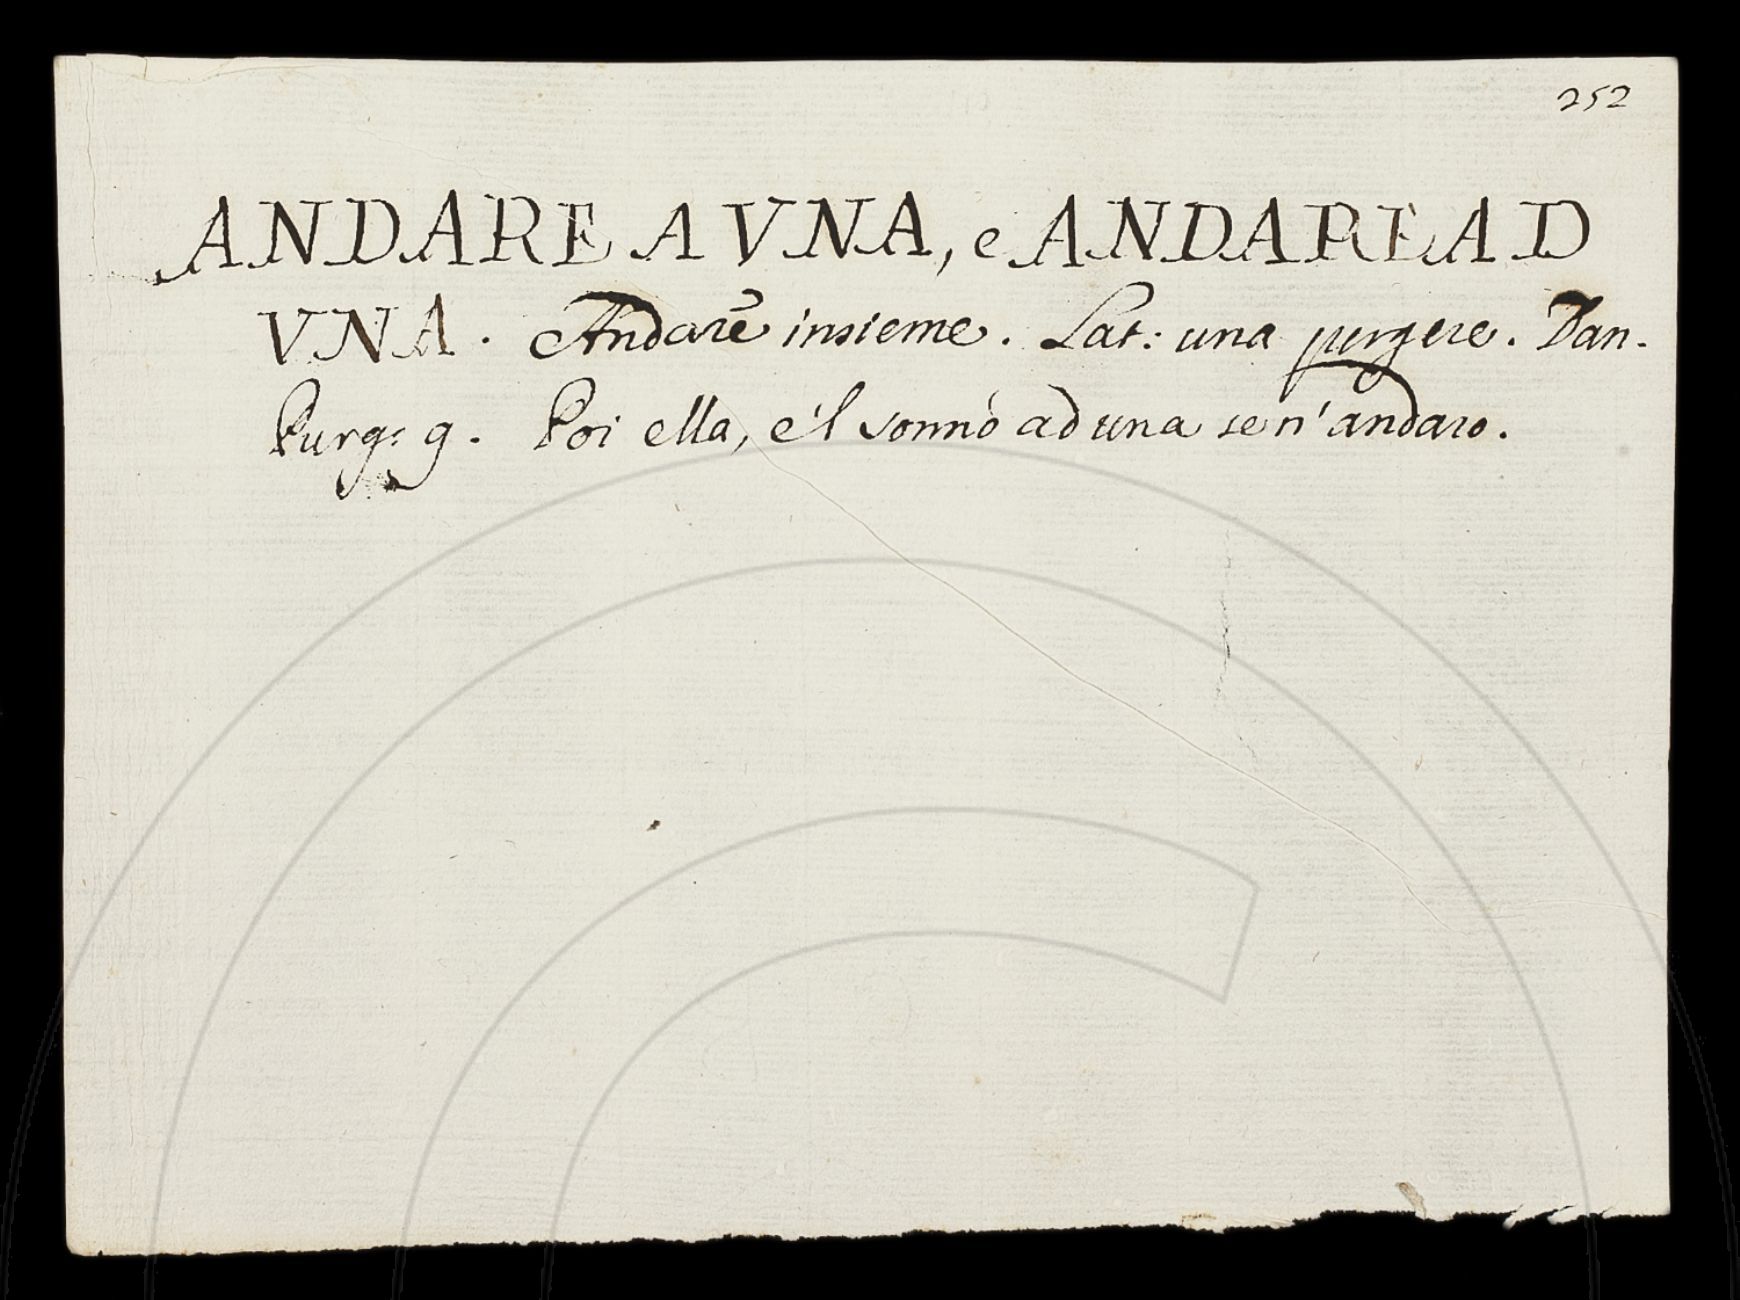 252
ANDARE A VNA, e ANDARE AD
VNA. Andare insieme. Lat: una pergere. Dan.
Purg: 9. Poi ella, e'l sonno ad una se n'andaro.